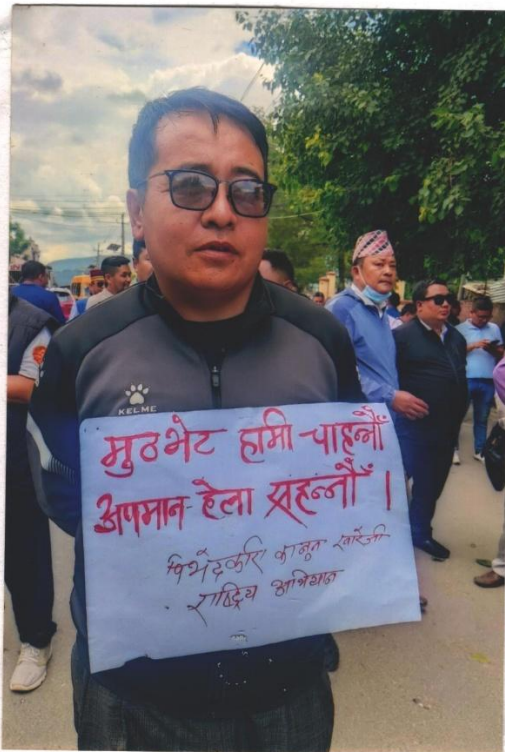 KELME
मुठभेट हामी चाहन्नौं
अपमान-हेला सहन्नौँ ।
विभेदकारी कानुन खारेजी
राष्ट्रिय अभियान